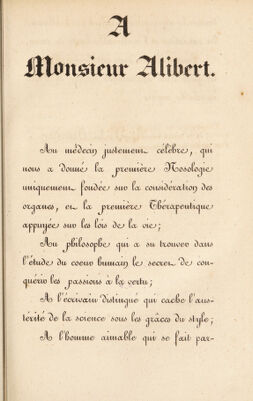 A
Monsieur Alibert.
Au médecin justement célèbre, qui
nous a donné la première Nosologie
uniquement fondée sur la considération des
organes, et la première Thérapeutique
appuyée sur les lois de la vie;
Au philosophe qui a su trouver dans
l'étude du coeur humain le secret de con-
quérir les passions à la vertu;
A l'écrivain distingué qui cache l'aus-
térité de la science sous les grâces du style;
A l'homme aimable qui se fait par-